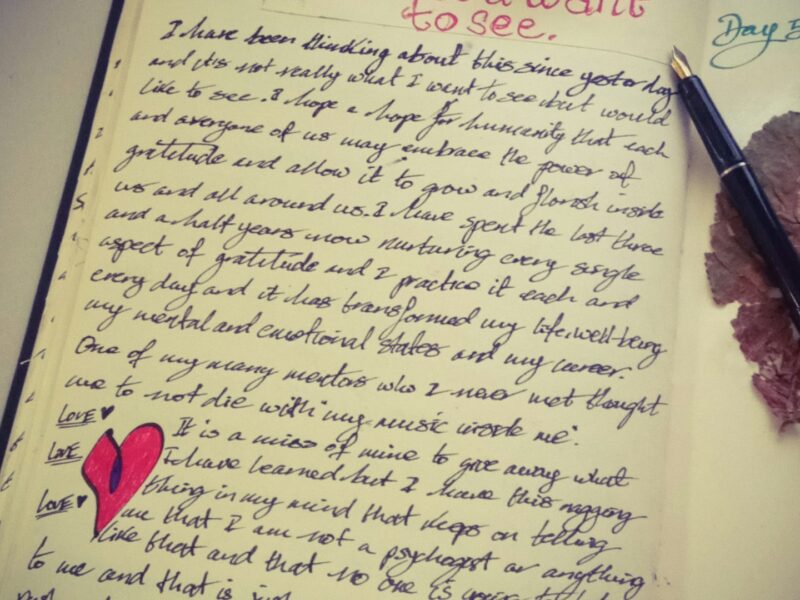 want
to see.
Day 5
I have been thinking about this since yesterday
and it's not really what I want to see but would
like to see. I hope a hope for humanity that each
and everyone of us may embrace the power of
gratitude and allow it to grow and florish inside
us and all around us. I have spent the last three
and a half years now nurturing every single
aspect of gratitude and I practice it each and
every day and it has transformed my life, well-being
my mental and emotional states and my career.
One of my many mentors who I never met thought
me to not die with my music inside me.
It is a miss of mine to give away what
I have learned but I have this nagging
thing in my mind that keeps on telling
me that I am not a psychogist or anything
like that and that no one is
to me and that is just
LOVE
LOVE
LOVE